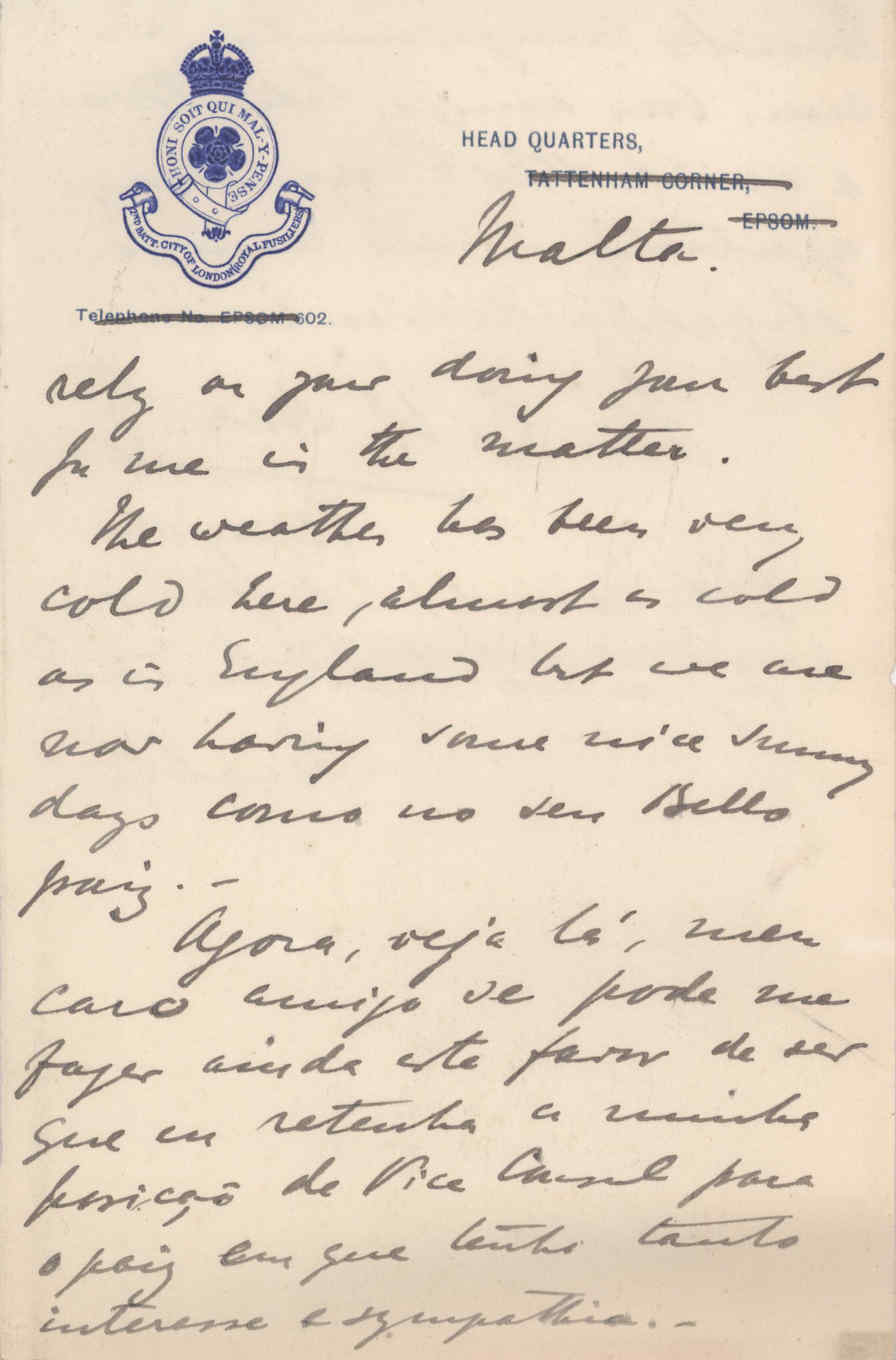 HONI SOIT QUI MAL-Y-PENSE
2ND BATT. CITY OF LONDON (ROYAL FUSILIERS)
HEAD QUARTERS,
TATTENHAM CORNER,
EPSOM.
Malta.
Telephone No. EPSOM 602.
rely on your doing your best
for me in the matter.
The weather has been very
cold here, almost as cold
as in England but we are
now having some nice sunny
days como no seu Bello
paiz. -
Agora, veja lá, meu
caro amigo se pode me
fazer ainda este favor de ser
que eu retenha a minha
posição de Vice Consul para
o paiz em que tenho tanto
interesse e sympathia. -